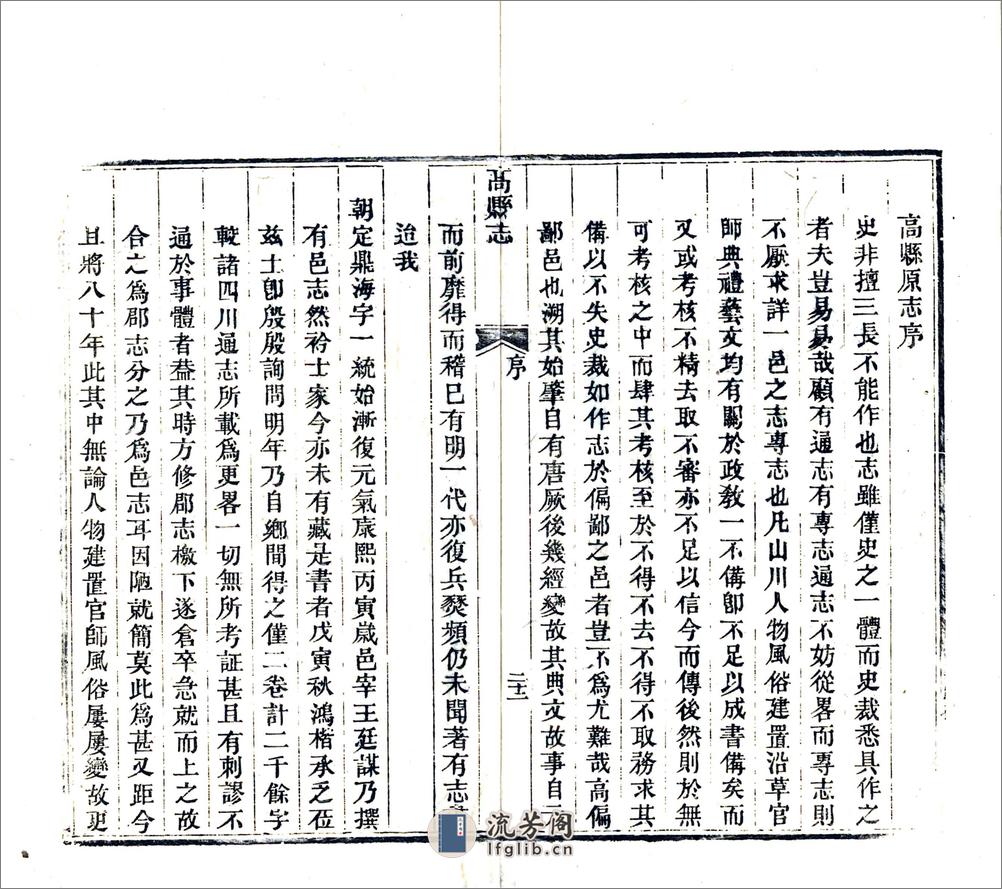 高縣原志序
史非擅三長不能作也志雖僅史之一體而史裁悉具作之
者夫豈易易哉顧有通志有專志通志不妨從畧而專志則
不厭求詳一邑之志專志也凡山川人物風俗建置沿革官
師典禮藝文均有關於政教一不備卽不足以成書備矣而
又或考核不精去取不審亦不足以信今而傳後然則於無
可考核之中而肆其考核至於不得不去不得不取務求其
備以不失史裁如作志於偏鄙之邑者豈不爲尤難哉高偏
鄙邑也溯其始肇自有唐厥後幾經變故其典文故事自元
高縣志
序
二十二
而前靡得而稽已有明一代亦復兵燹頻仍未聞著有志
迨我
朝定鼎海宇一統始漸復元氣康熙丙寅歲邑宰王廷謀乃撰
有邑志然衿士家今亦未有藏是書者戊寅秋鴻楷承乏莅
兹土卽殷殷詢問明年乃自鄉間得之僅二卷計二千餘字
較諸四川通志所載爲更畧一切無所考証甚且有刺謬不
通於事體者葢其時方修郡志檄下遂倉卒急就而上之故
合之爲郡志分之乃爲邑志耳因陋就簡莫此爲甚又距今
且將八十年此其中無論人物建置官師風俗屢屢變故更
流芳阁
lfglib.cn